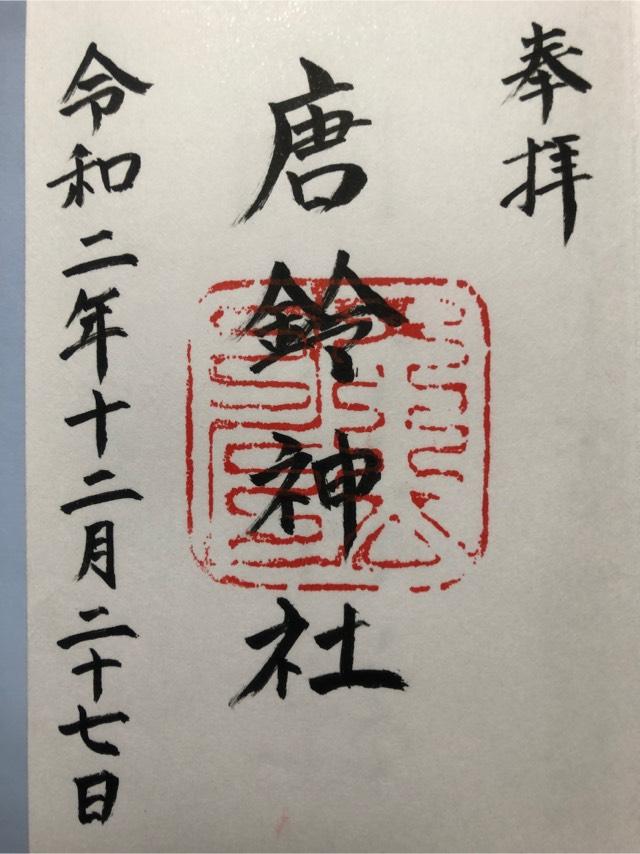 奉拝
唐鈴神社
令和二年十二月二十七日